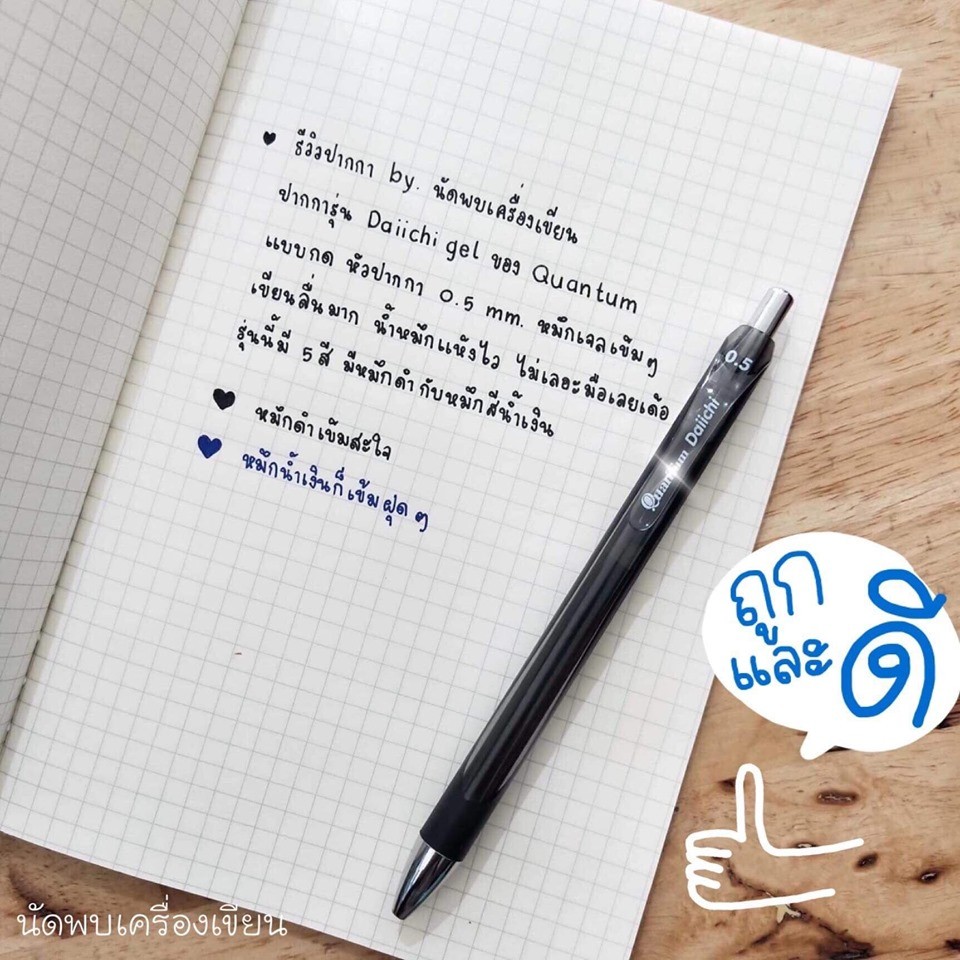 รีวิวปากกา by. นัดพบเครื่องเขียน
ปากการุ่น Daiichi gel ของ Quantum
แบบกด หัวปากกา 0.5 mm. หมึกเจลเข้มๆ
เขียนลื่นมาก น้ำหมึกแห้งไว ไม่เลอะมือเลยเด้อ
รุ่นนี้มี 5 สี มีหมึกดำกับหมึกสีน้ำเงิน
หมึกดำเข้มสะใจ
หมึกน้ำเงินก็เข้มฝุดๆ
0.5
Quantum Daiichi
ถูก
และ ดี
นัดพบเครื่องเขียน